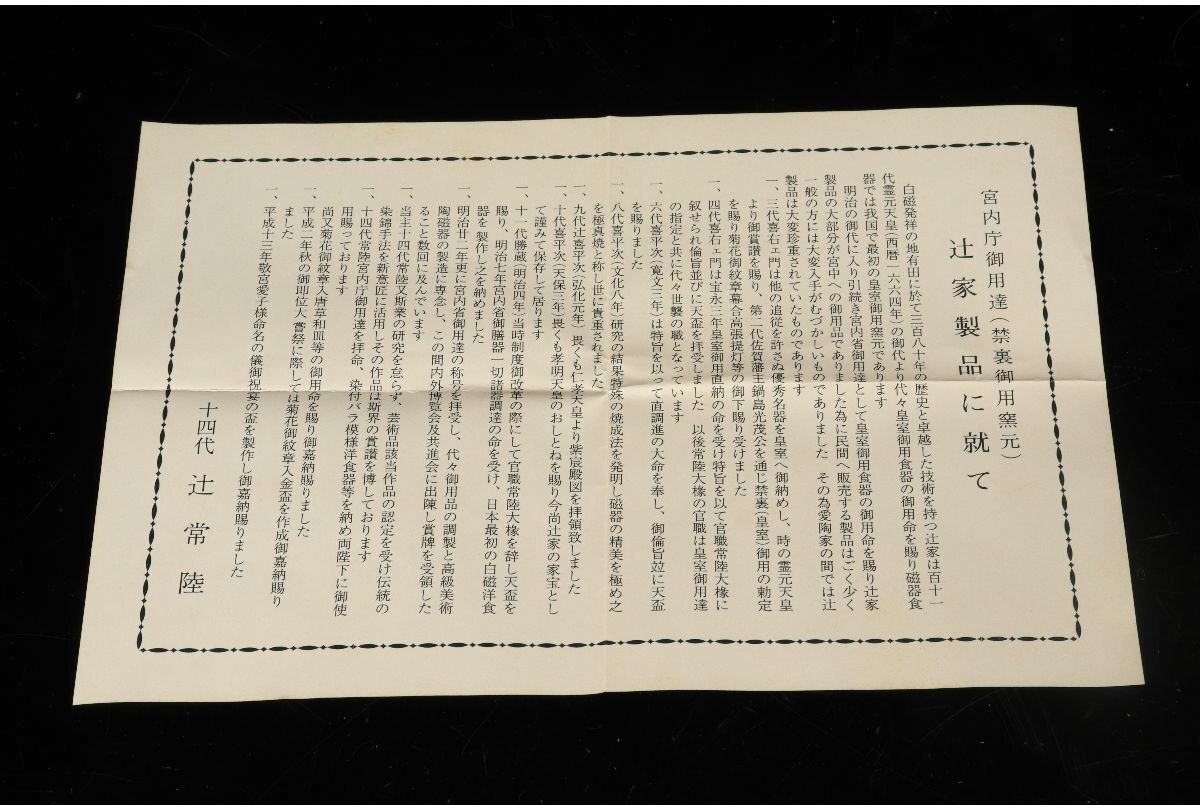 宮内庁御用達（禁裏御用窯元）
辻家製品に就て
白磁発祥の地有田に於て三百八十年の歴史と卓越した技術を持つ辻家は百十一
代霊元天皇（西暦一六六四年）の御代より代々皇室御用食器の御用命を賜り磁器食
器では我国で最初の皇室御用窯元であります
明治の御代に入り引続き宮内省御用達として皇室御用食器の御用命を賜り辻家
製品の大部分が宮中への御用品でありました為に民間へ販売する製品はごく少く
一般の方には大変入手がむづかしいものでありました　その為愛陶家の間では辻
製品は大変珍重されていたものであります
一、三代喜右ェ門は他の追従を許さぬ優秀名器を皇室へ御納めし、時の霊元天皇
より御賞讃を賜り、第二代佐賀藩主鍋島光茂公を通じ禁裏（皇室）御用の勅定
を賜り菊花御紋章幕合高張提灯等の御下賜り受けました
一、四代喜右ェ門は宝永三年皇室御用直納の命を受け特旨を以て官職常陸大椽に
叙せられ倫旨並びに天盃を拝受しました　以後常陸大椽の官職は皇室御用達
の指定と共に代々世襲の職となっています
一、六代喜平次（寛文三年）は特旨を以って直調進の大命を奉し、御倫旨竝に天盃
を賜りました
一、八代喜平次（文化八年）研究の結果特殊の焼成法を発明し磁器の精美を極め之
を極真焼と称し世に貴重されました
一、九代辻喜平次（弘化元年）畏くも仁孝天皇より紫宸殿図を拝領致しました
一、十代喜平次（天保三年）畏くも孝明天皇のおしとねを賜り今尚辻家の家宝とし
て謹みて保存して居ります
一、十一代勝蔵（明治四年）当時制度御改革の際にして官職常陸大椽を辞し天盃を
賜り、明治七年宮内省御膳器一切諸器調達の命を受け、日本最初の白磁洋食
器を製作し之を納めました
一、明治廿二年更に宮内省御用達の称号を拝受し、代々御用品の調製と高級美術
陶磁器の製造に専念し、この間内外博覧会及共進会に出陳し賞牌を受領した
ること数回に及んでいます
一、当主十四代常陸又斯業の研究を怠らず、芸術品該当作品の認定を受け伝統の
染錦手法を新意匠に活用しその作品は斯界の賞讃を博しております
一、十四代常陸宮内庁御用達を拝命、染付バラ模様洋食器等を納め両陛下に御使
用賜っております
尚又菊花御紋章入唐草和皿等の御用命を賜り御嘉納賜りました
一、平成二年秋の御即位大嘗祭に際しては菊花御紋章入金盃を作成御嘉納賜り
ました
一、平成十三年敬宮愛子様命名の儀御祝宴の盃を製作し御嘉納賜りました
十四代　辻　常　陸